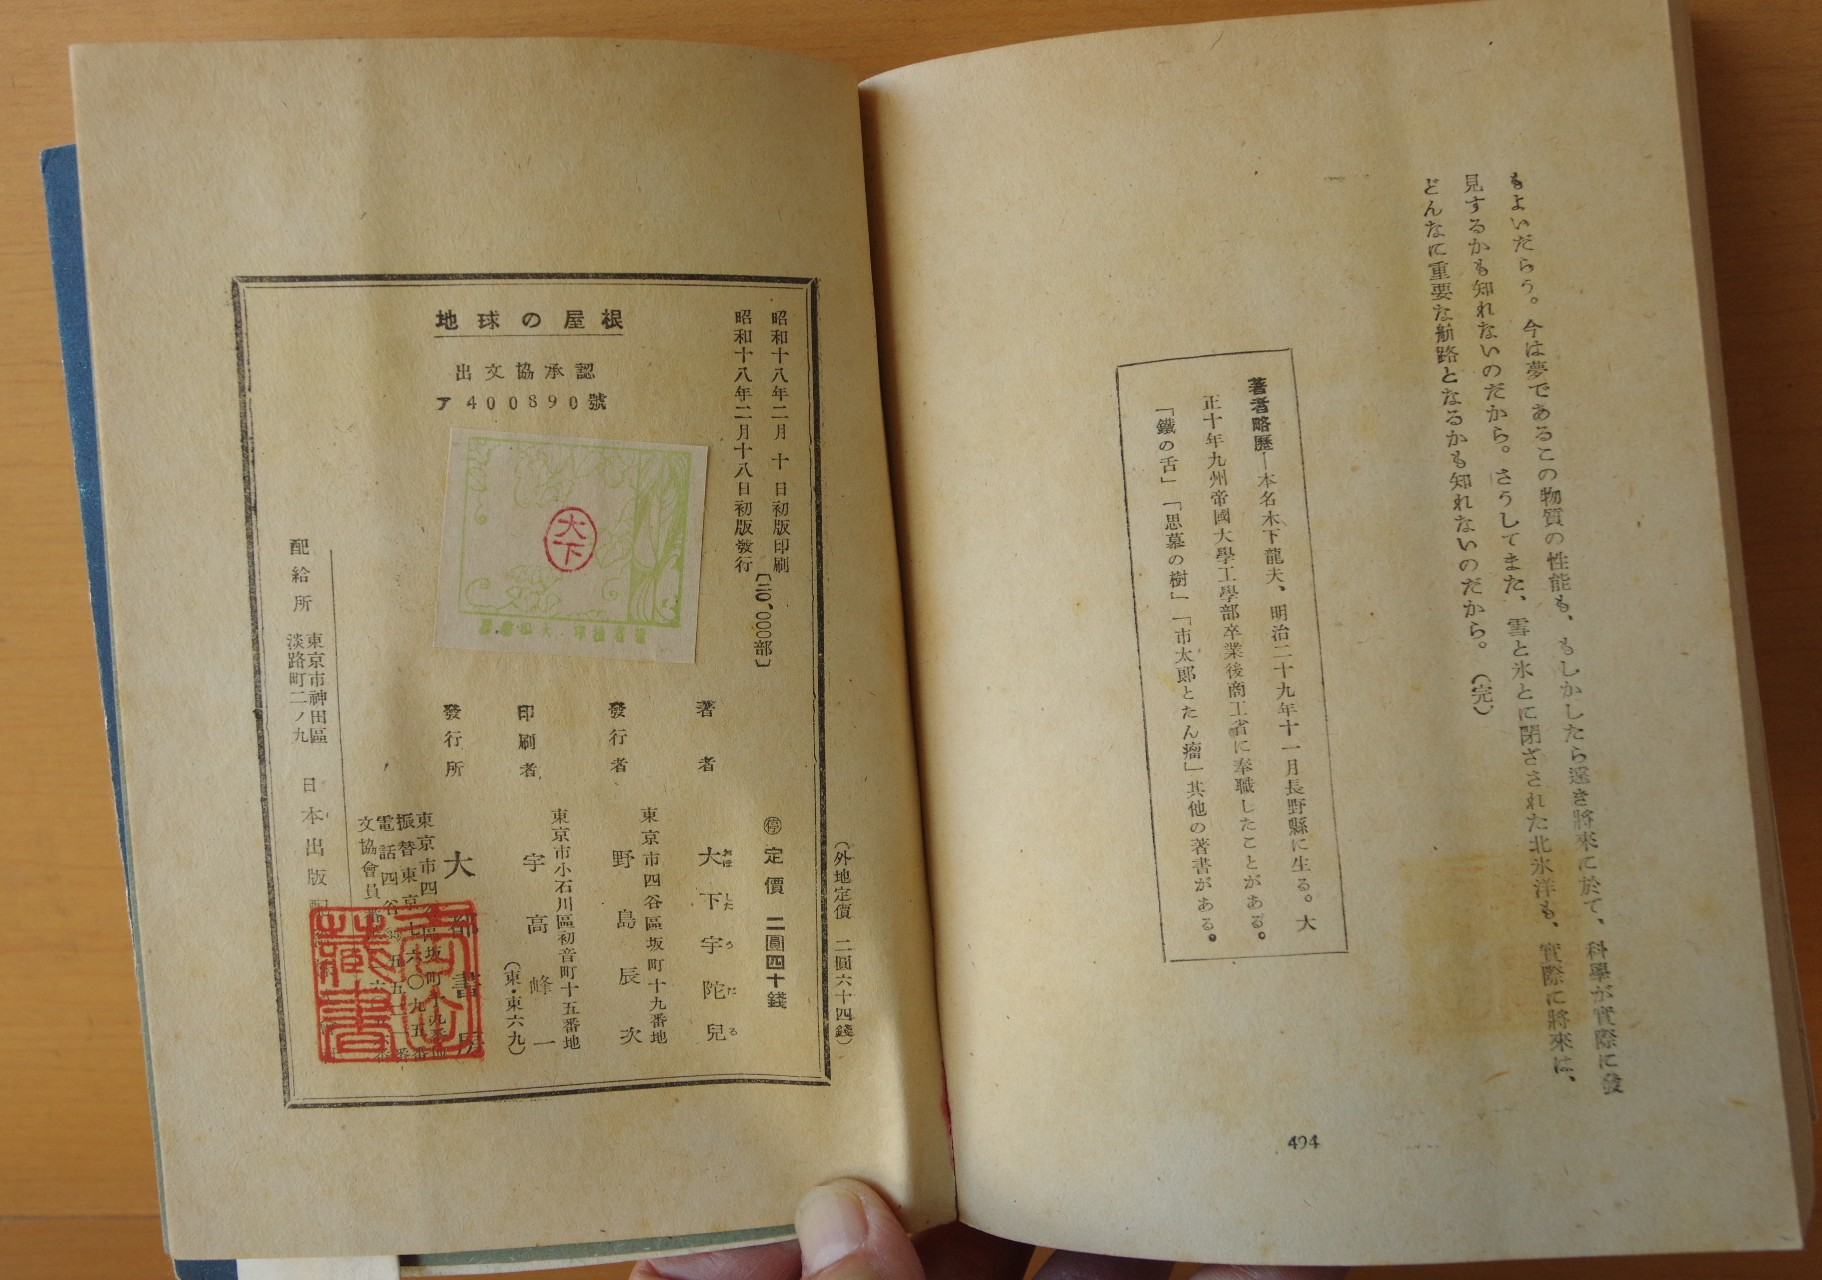 もよいだらう。今は夢であるこの物質の性能も、もしかしたら遠き將來に於て、科學が實際に發
見するかも知れないのだから。さうしてまた、雪と氷とに閉ざされた北氷洋も、實際に將來は、
どんなに重要な航路となるかも知れないのだから。(完)
著者略歷―本名木下龍夫、明治二十九年十一月長野縣に生る。大
正十年九州帝國大學工學部卒業後商工省に奉職したことがある。
「鐵の舌」「思慕の樹」「市太郎とたん瘤」其他の著書がある。
494
地球の屋根
出文協承認
ア400890號
昭和十八年二月十日初版印刷
昭和十八年二月十八日初版發行
〔二〇、〇〇〇部〕
大下
(外地定價 二圓六十四錢)
停 定價 二圓四十錢
著者 大下宇陀兒
おほ した う だ る
發行者 東京市四谷區坂町十九番地
野島辰次
印刷者 東京市小石川區初音町十五番地
宇高峰一
(東・東六九)
發行所 大都書房
東京市四谷區坂町十九番地
振替東京七六〇九五番
電話四谷
文協會員
配給所 東京市神田區
淡路町二ノ九
日本出版配
藏書